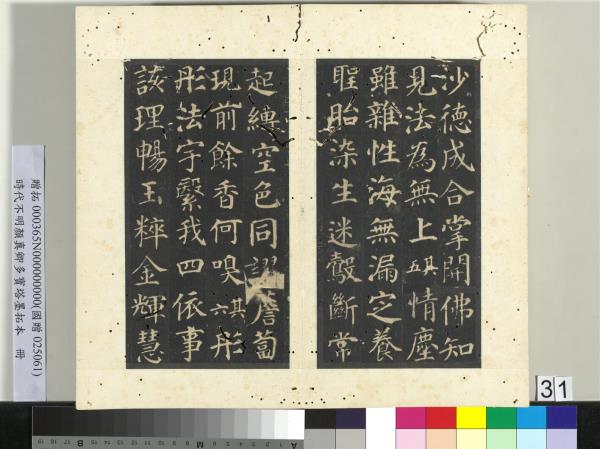 沙德成合掌開佛知
見法為無上其五情塵
雖雜性海無漏定養
聖胎染生迷鷇斷常
起縛空色同謬薝蔔
現前餘香何嗅其六彤
彤法宇繄我四依事
該理暢玉粹金輝慧
贈拓 000365N000000000(國贈 025061)
時代不明顏真卿多寶塔墨拓本 冊
31